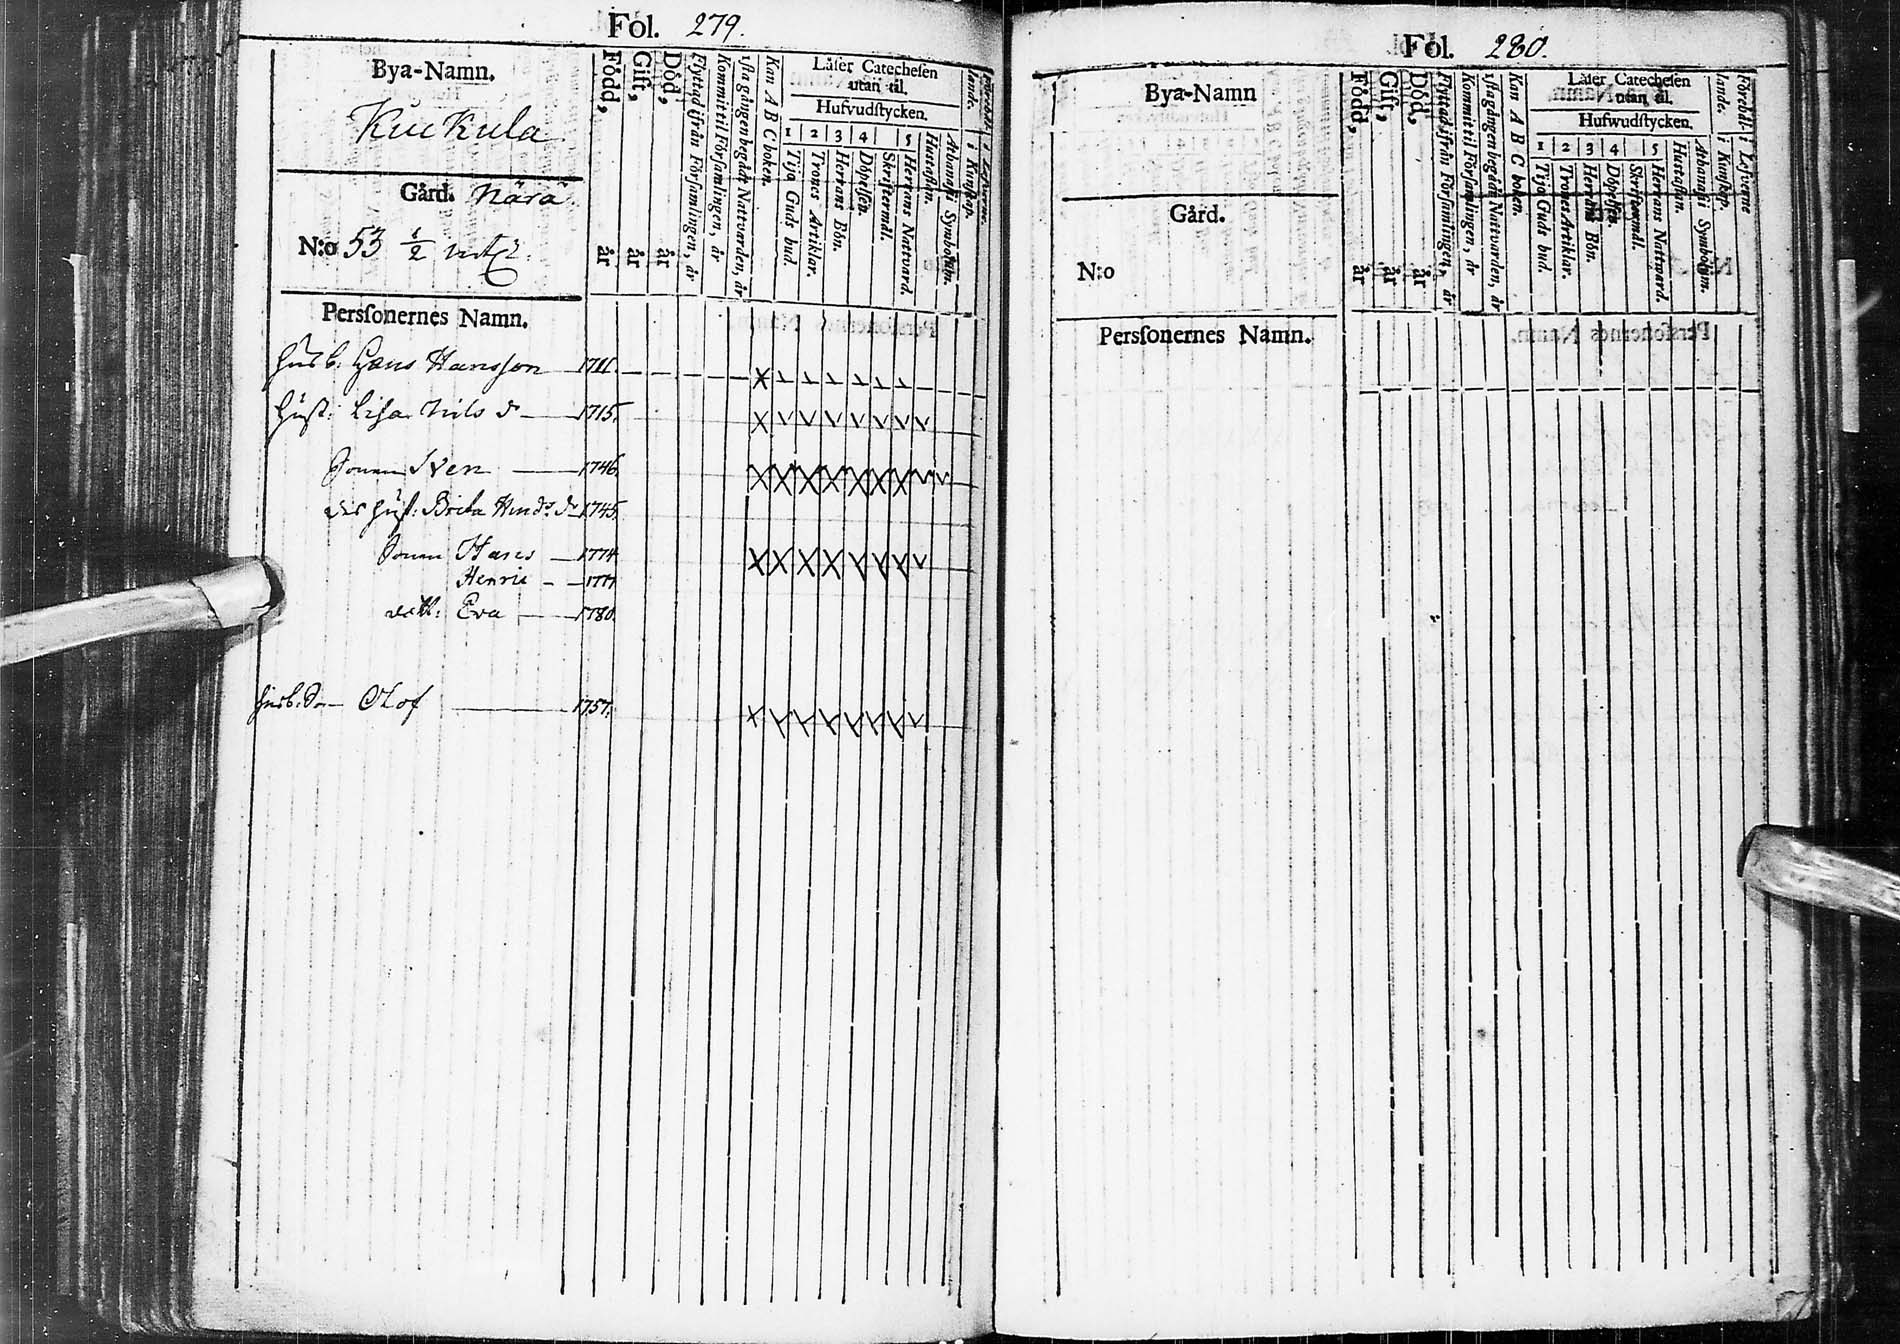 Fol. 279.
Bya-Namn.
Kuckula
Gård. Närä
N:o 53 1/2
Född, år
Gift, år
Död, år
Flyttad ifrån Församlingen, år
Kommit til Församlingen, år
1sta gången begådt Nattvarden, år
Kan A B C boken.
Läser Catechesen
utan til.
Hufvudstycken.
1 2 3 4 5
Tijo Guds bud.
Trones Artiklar.
Herrans Bön.
Döpelsen.
Skriftermål.
Herrans Nattvard.
Hustaflan.
Athanasii Symbolum.
Persſonernes Namn.
Husb: Hans Hansson 1711.
Hust: Lisa Nils dr 1715.
Sonen Sven 1746.
des Hust: Brita Hindr: dr 1745.
Sonen Hans 1774
Henric 1777
dott: Eva 1780.
Husb: Sn Olof 1757.
Fol. 280.
Bya-Namn
Gård.
N:o
Född, år
Gift, år
Död, år
Flyttad ifrån Församlingen, år
Kommit til Församlingen, år
1sta gången begådt Nattvarden, år
Kan A B C boken.
Läser Catechesen
utan til.
Hufwudstycken.
1 2 3 4 5
Tijo Guds bud.
Trones Artiklar.
Herrans Bön.
Döpelsen.
Skriftermål.
Herrans Nattward.
Hustaflan.
Athanasii Symbolum.
Persſonernes Namn.